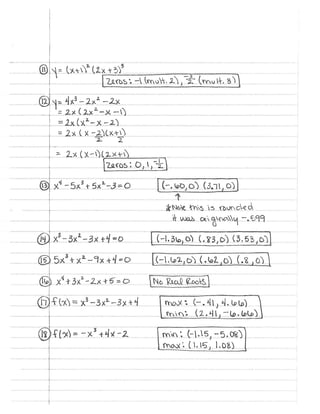 ⑪ y = (x+1)² (2x+3)³
Zeros: -1 (mult. 2), -3/2 (mult. 3)
⑫ y = 4x³ - 2x² - 2x
= 2x (2x² - x - 1)
= 2x (x² - x - 2)
= 2x (x - 2/2)(x + 1/2)
= 2x (x-1)(2x+1)
Zeros: 0, 1, -1/2
⑬ x⁴ - 5x³ + 5x² - 3 = 0 (-.60, 0) (3.71, 0)
*Note this is rounded
it was originally -.599
⑭ x³ - 3x² - 3x + 4 = 0 (-1.36, 0) (.83, 0) (3.53, 0)
⑮ 5x³ + x² - 9x + 4 = 0 (-1.62, 0) (.62, 0) (.8, 0)
⑯ x⁴ + 3x² - 2x + 5 = 0 No Real Roots
⑰ f(x) = x³ - 3x² - 3x + 4 max: (-.41, 4.66)
min: (2.41, -6.66)
⑱ f(x) = -x³ + 4x - 2 min: (-1.15, -5.08)
max: (1.15, 1.08)